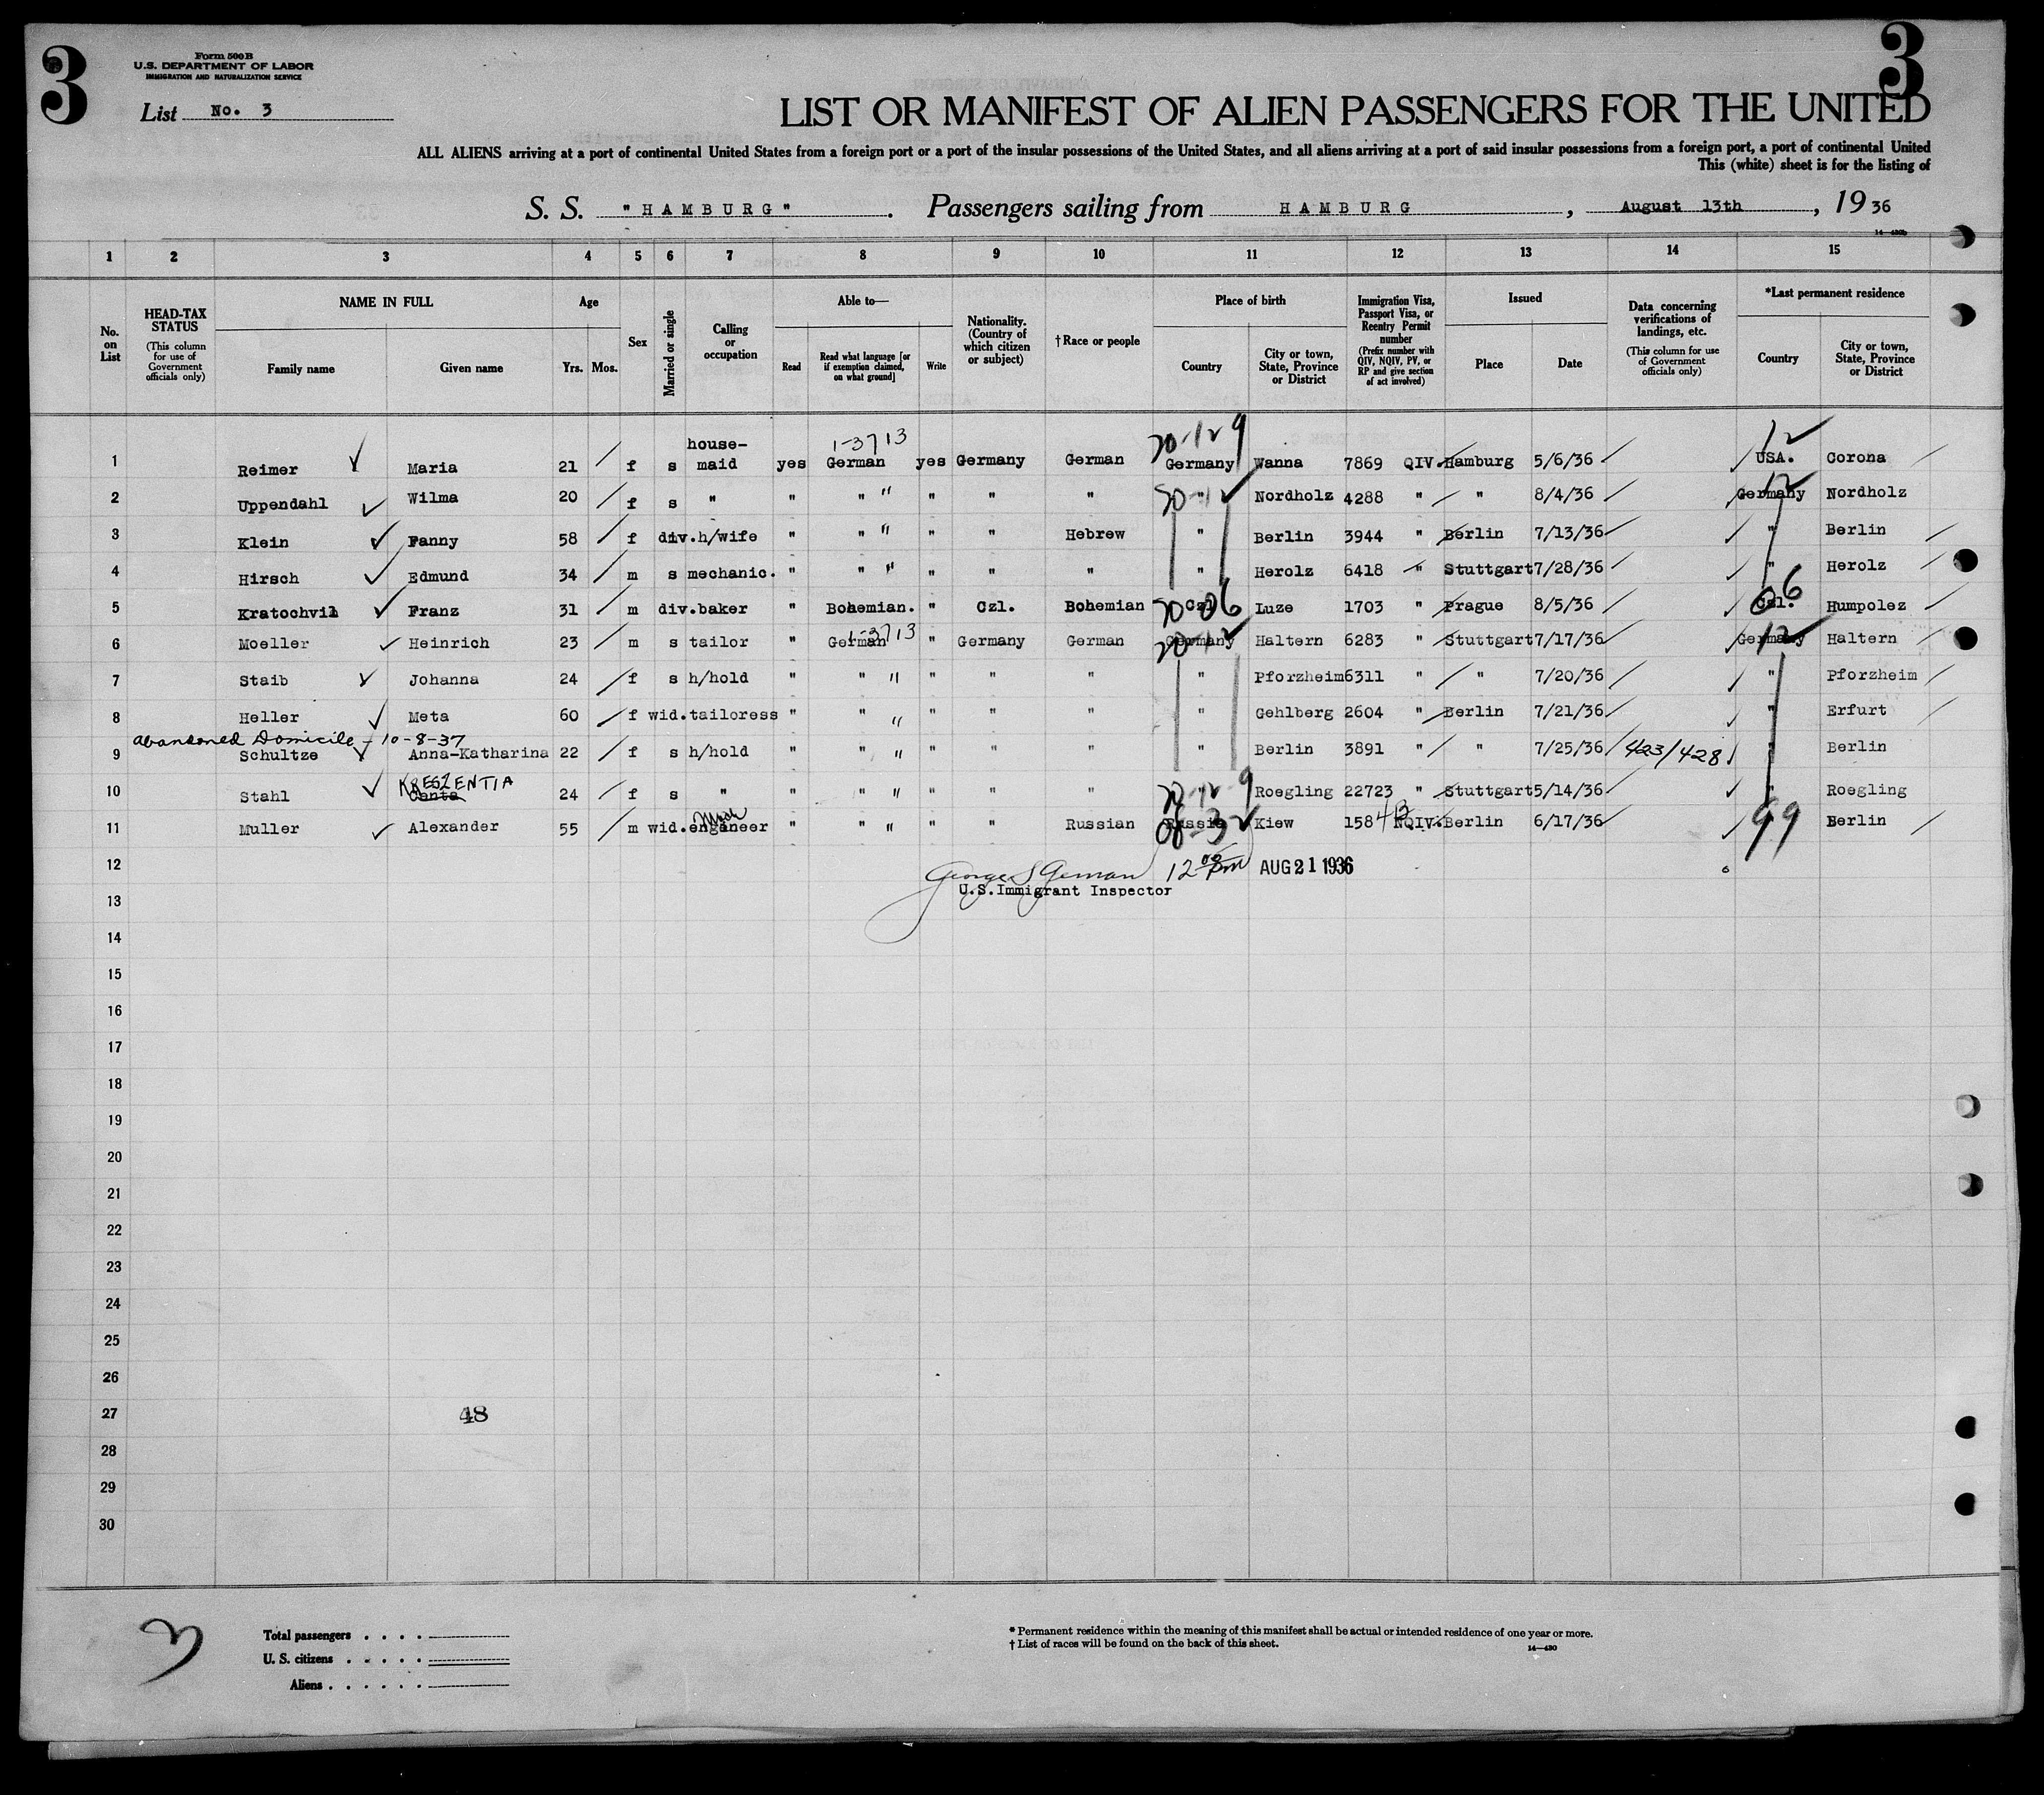 3
3
Form 500B
U.S. DEPARTMENT OF LABOR
IMMIGRATION AND NATURALIZATION SERVICE
List No. 3
LIST OR MANIFEST OF ALIEN PASSENGERS FOR THE UNITED
ALL ALIENS arriving at a port of continental United States from a foreign port or a port of the insular possessions of the United States, and all aliens arriving at a port of said insular possessions from a foreign port, a port of continental United
This (white) sheet is for the listing of
S. S. "HAMBURG". Passengers sailing from HAMBURG, August 13th, 1936
1 2 3 4 5 6 7 8 9 10 11 12 13 14 15
No. on List
HEAD-TAX STATUS (This column for use of Government officials only)
NAME IN FULL
Family name
Given name
Age
Yrs. Mos.
Sex
Married or single
Calling or occupation
Able to—
Read
Read what language [or if exemption claimed, on what ground]
Write
Nationality. (Country of which citizen or subject)
†Race or people
Place of birth
Country
City or town, State, Province or District
Immigration Visa, Passport Visa, or Reentry Permit number (Prefix number with QIV, NQIV, PV, or RP and give section of act involved)
Issued
Place
Date
Data concerning verifications of landings, etc. (This column for use of Government officials only)
*Last permanent residence
Country
City or town, State, Province or District
1-3713 20-12 9 12
1 Reimer Maria 21 f s house-maid yes German yes Germany German Germany Wanna 7869 QIV. Hamburg 5/6/36 USA. Corona
2 Uppendahl Wilma 20 f s " " " " " " " " Nordholz 4288 " " 8/4/36 Germany Nordholz
3 Klein Fanny 58 f div. h/wife " " " " " Hebrew " Berlin 3944 " Berlin 7/13/36 " Berlin
4 Hirsch Edmund 34 m s mechanic. " " " " " " " Herolz 6418 " Stuttgart 7/28/36 " Herolz
5 Kratochvil Franz 31 m div. baker " Bohemian. " Czl. Bohemian Czl. Luze 1703 " Prague 8/5/36 Czl. Humpolez
6 Moeller Heinrich 23 m s tailor " German 1-3713 " Germany German Germany Haltern 6283 " Stuttgart 7/17/36 Germany Haltern
7 Staib Johanna 24 f s h/hold " " " " " " " Pforzheim 6311 " " 7/20/36 " Pforzheim
8 Heller Meta 60 f wid. tailoress " " " " " " " Gehlberg 2604 " Berlin 7/21/36 " Erfurt
Abandoned Domicile - 10-8-37
9 Schultze Anna-Katharina 22 f s h/hold " " " " " " " Berlin 3891 " " 7/25/36 423/428 " Berlin
KRESZENTIA
10 Stahl Centa 24 f s " " " " " " " 20-12 9 Roegling 22723 " Stuttgart 5/14/36 " Roegling
11 Muller Alexander 55 m wid. engeneer " " " " " Russian Russia Kiew 158 4B NQIV. Berlin 6/17/36 99 Berlin
12 George S German 12 00 Pm AUG 21 1936
U.S. Immigrant Inspector
13
14
15
16
17
18
19
20
21
22
23
24
25
26
27 48
28
29
30
3
Total passengers
U. S. citizens
Aliens
* Permanent residence within the meaning of this manifest shall be actual or intended residence of one year or more.
† List of races will be found on the back of this sheet.
14—430